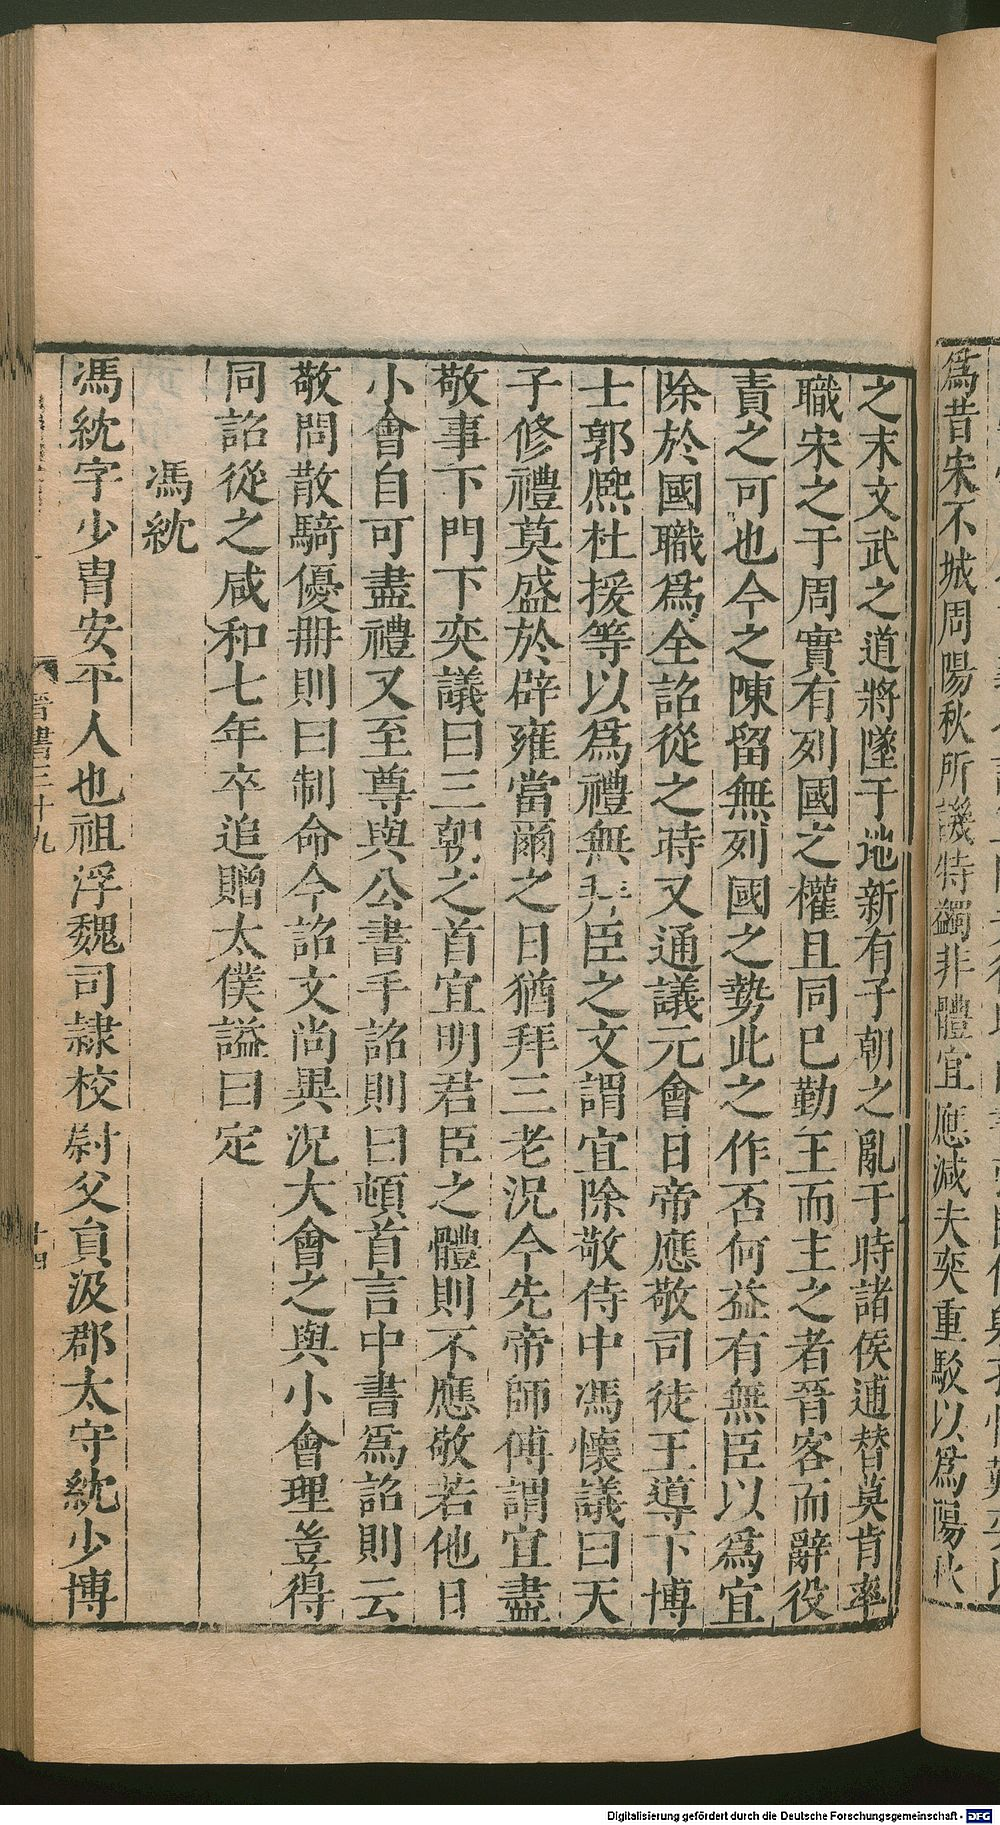 爲昔宋不城周陽秋所譏特蠲非體宜應減夫奕重駁以爲陽秋
之末文武之道將墜于地新有子朝之亂于時諸侯逋替莫肯率
職宋之于周實有列國之權且同巳勤王而主之者晉客而辭役
責之可也今之陳留無列國之勢此之作否何益有無臣以爲宜
除於國職爲全詔從之時又通議元會日帝應敬司徒王導下博
士郭熈杜援等以爲禮無拜臣之文謂宜除敬侍中馮懷議曰天
子修禮莫盛於辟雍當爾之日猶拜三老況今先帝師傅謂宜盡
敬事下門下奕議曰三朝之首宜明君臣之體則不應敬若他日
小會自可盡禮又至尊與公書手詔則曰頓首言中書爲詔則云
敬問散騎優冊則曰制命今詔文尚異況大會之與小會理豈得
同詔從之咸和七年卒追贈太僕謚曰定
馮紞
馮紞字少胄安平人也祖浮魏司隷校尉父員汲郡太守紞少博
晉書三十九
十四
Digitalisierung gefördert durch die Deutsche Forschungsgemeinschaft - DFG